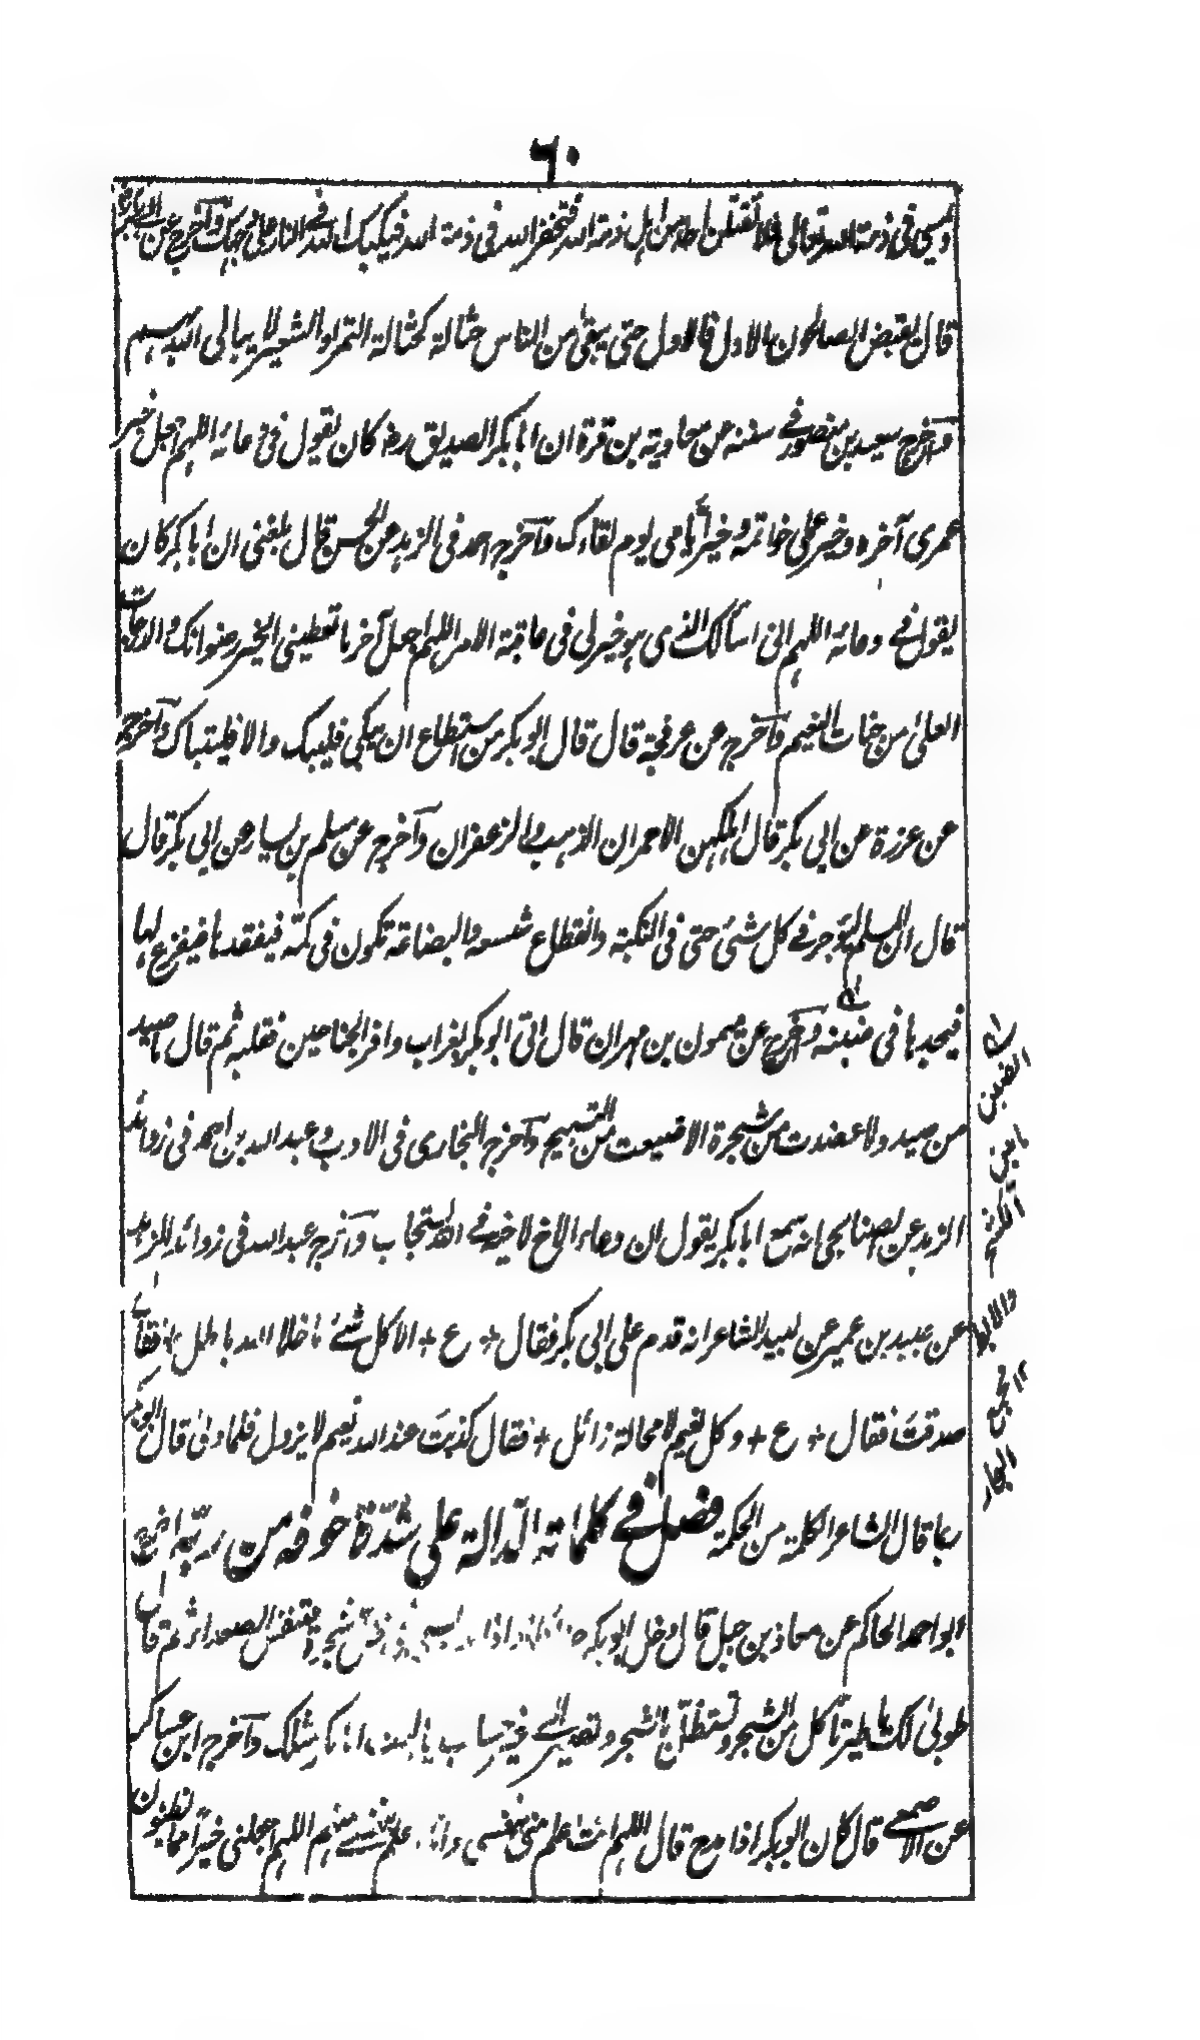 ٦٠
ويمسي في ذمة الله تعالى فلا تقتلن احدا من اهل ذمة الله فتخفر الله في ذمة الله فيكبك الله في النار على وجهك وآخرج عن
قال يقبض الصالحون الاول فالاول حتى يبقى من الناس حثالة كحثالة التمر والشعير لا يبالى الله بهم
وآخرج سعيد بن منصور في سننه عن معاوية بن قرة ان ابا بكر الصديق رضه كان يقول في دعائه اللهم اجعل خير
عمرى آخره وخير عملى خواتمه وخير ايامى يوم لقاءك وآخرج احمد في الزهد عن الحسن قال بلغنى ان ابا بكر كان
يقول في دعائه اللهم انى اسألك الذى هو خير لى في عاقبة الامر اللهم اجعل آخر ما تعطينى الخير رضوانك والدرجات
العلىٰ من جنات النعيم وآخرج عن عرفجة قال قال ابو بكر من استطاع ان يبكى فليبك والا فليتباك وآخرج
عن عزرة عن ابى بكر قال اهلكهن الاحمران الذهب والزعفران وآخرج عن مسلم بن يسار عن ابى بكر قال
قال ان المسلم ليؤجر في كل شئ حتى في النكبة وانقطاع شسعه والبضاعة تكون في كمه فيفقدها فيفزع لها
فيجدها في ضبنه وآخرج عن ميمون بن مهران قال اتى ابو بكر بغراب وافر الجناحين فقلبه ثم قال ما صيد
من صيد ولا عضدت من شجرة الا ضيعت من التسبيح وآخرج البخارى في الادب وعبد الله بن احمد في زوائد
الزهد عن الصنابحى انه سمع ابا بكر يقول ان دعاء الاخ لاخيه في الله يستجاب وآخرج عبد الله في زوائد الزهد
عن عبيد بن عمير عن لبيد الشاعر انه قدم على ابى بكر فقال + ع + الا كل شئ ما خلا الله باطل + فقال
صدقت فقال + ع + وكل نعيم لا محالة زائل + فقال كذبت عند الله نعيم لا يزول فلما ولىٰ قال ابو بكر
ربما قال الشاعر الكلمة من الحكمة فصل في كلماته الدالة على شدة خوفه من ربه اخرج
ابو احمد الحاكم عن معاذ بن جبل قال دخل ابو بكر شجرة فتنفس الصعداء ثم قال
طوبىٰ لك يا طير تأكل من الشجر وتستظل بالشجر وتصير الى غير حساب يا ليت ابا بكر مثلك وآخرج ابن عساكر
عن الاصمعى قال كان ابو بكر اذا مدح قال اللهم انت اعلم منى بنفسى وانا اعلم بنفسى منهم اللهم اجعلنى خيرا مما يظنون